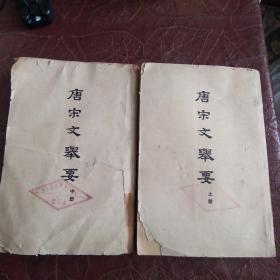 唐宋文舉要
中冊
唐宋文舉要
上冊